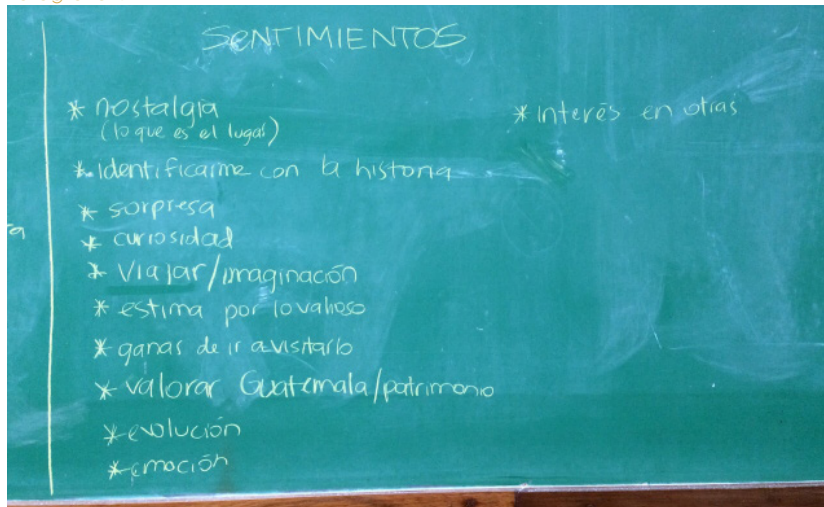 SENTIMIENTOS
* nostalgia
(lo que es el lugar)
* identificarme con la historia
* sorpresa
* curiosidad
* viajar/imaginación
* estima por lo valioso
* ganas de ir a visitarlo
* valorar Guatemala/patrimonio
* evolución
* emoción
* interés en otras